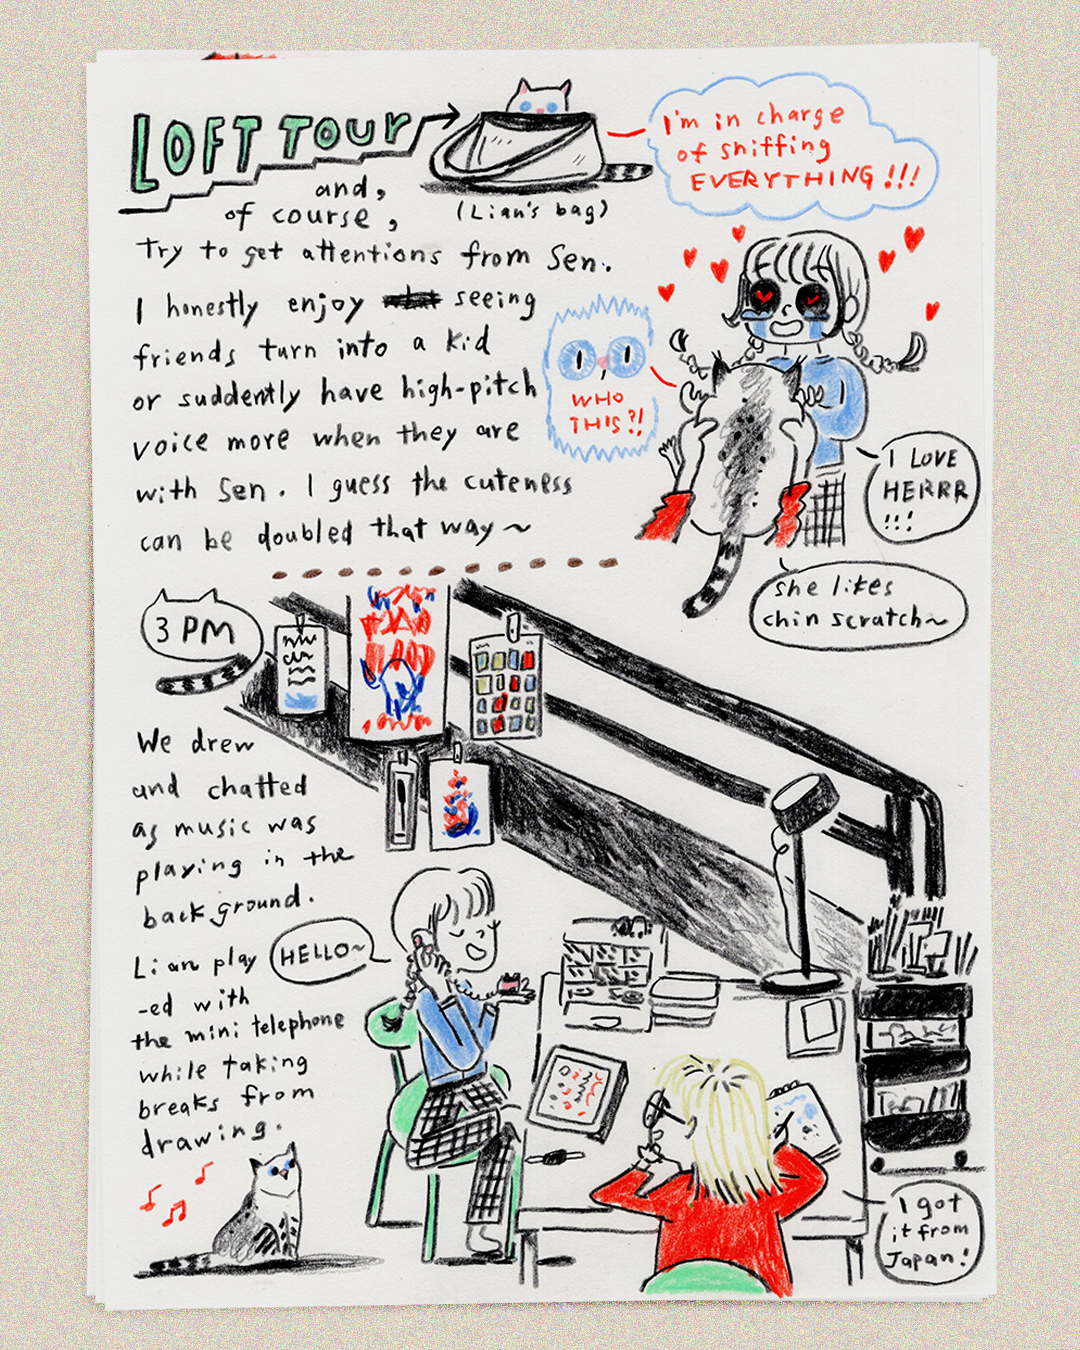 LOFT TOUR
and,
of course,
(Lian's bag)
I'm in charge
of sniffing
EVERYTHING !!!
Try to get attentions from Sen.
I honestly enjoy seeing
friends turn into a kid
or suddently have high-pitch
voice more when they are
with Sen. I guess the cuteness
can be doubled that way~
WHO
THIS?!
I LOVE
HERRR
!!!
she likes
chin scratch~
3 PM
We drew
and chatted
as music was
playing in the
background.
Lian play
-ed with
the mini telephone
while taking
breaks from
drawing.
HELLO~
I got
it from
Japan!